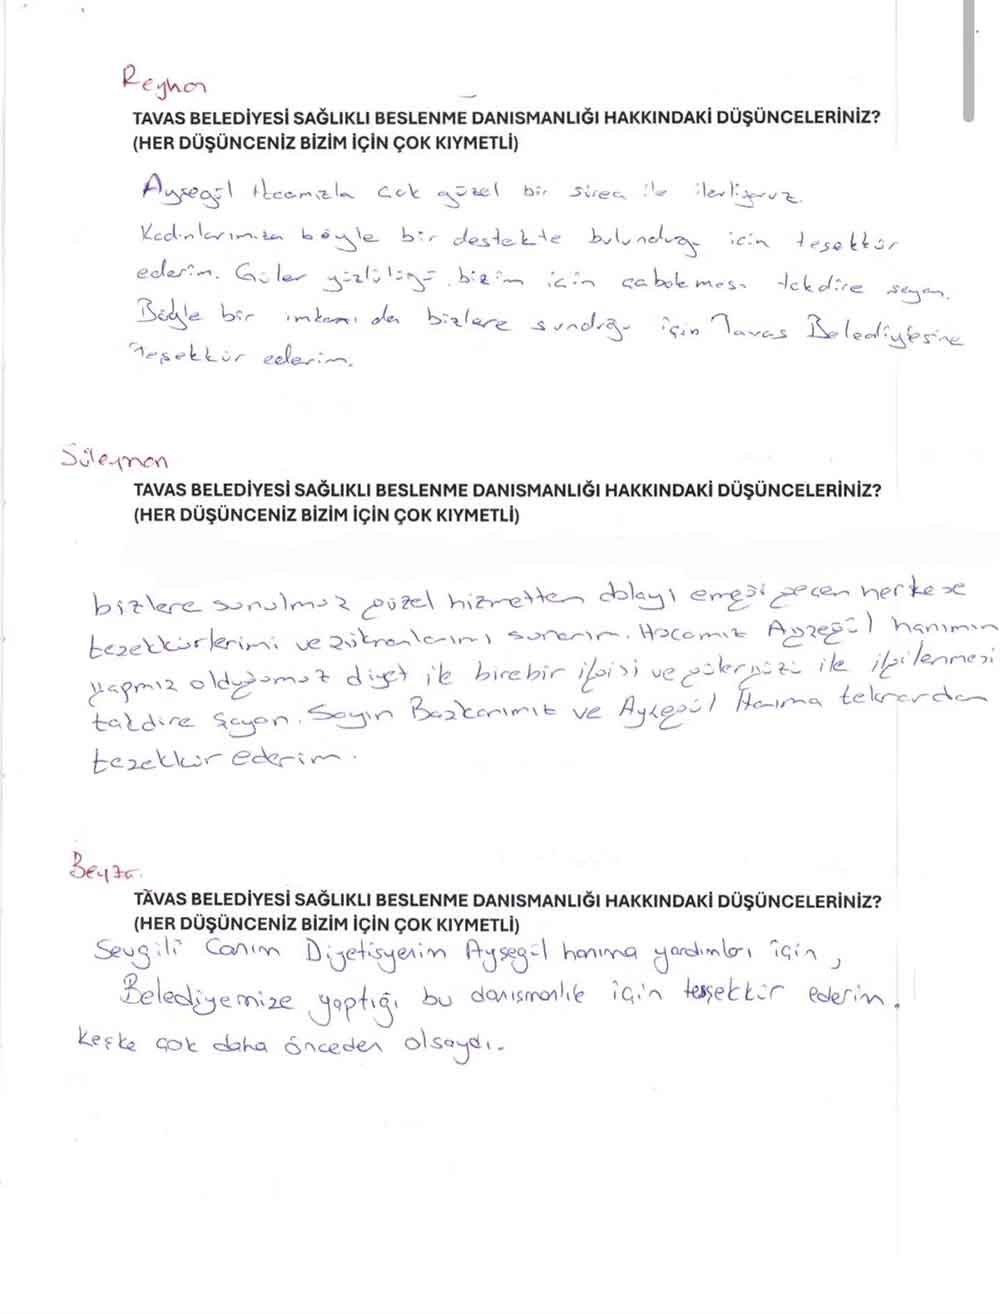 Reyhan
TAVAS BELEDİYESİ SAĞLIKLI BESLENME DANISMANLIĞI HAKKINDAKİ DÜŞÜNCELERİNİZ?
(HER DÜŞÜNCENİZ BİZİM İÇİN ÇOK KIYMETLİ)
Ayşegül Hocamızla çok güzel bir sürec ile ilerliyoruz.
Kadınlarımıza böyle bir destekte bulunduğu icin teşekkür
ederim. Güler yüzlülüğü, bizim icin çabalaması takdire şayan.
Böyle bir imkanı da bizlere sunduğu için Tavas Belediyesine
teşekkür ederim.
Süleyman
TAVAS BELEDİYESİ SAĞLIKLI BESLENME DANISMANLIĞI HAKKINDAKİ DÜŞÜNCELERİNİZ?
(HER DÜŞÜNCENİZ BİZİM İÇİN ÇOK KIYMETLİ)
bizlere sunulmuş güzel hizmetten dolayı emeği geçen herkese
teşekkürlerimi ve şükranlarımı sunarım. Hocamız Ayşegül hanımın
yapmış olduğumuz diyet ile birebir ilgisi ve güleryüzü ile ilgilenmesi
takdire şayan. Sayın Başkanımız ve Ayşegül Hanıma tekrardan
teşekkür ederim.
Beyza
TAVAS BELEDİYESİ SAĞLIKLI BESLENME DANISMANLIĞI HAKKINDAKİ DÜŞÜNCELERİNİZ?
(HER DÜŞÜNCENİZ BİZİM İÇİN ÇOK KIYMETLİ)
Sevgili Canım Diyetisyenim Ayşegül hanıma yardımları için,
Belediyemize yaptığı bu danısmanlık için teşekkür ederim.
Keşke çok daha önceden olsaydı.